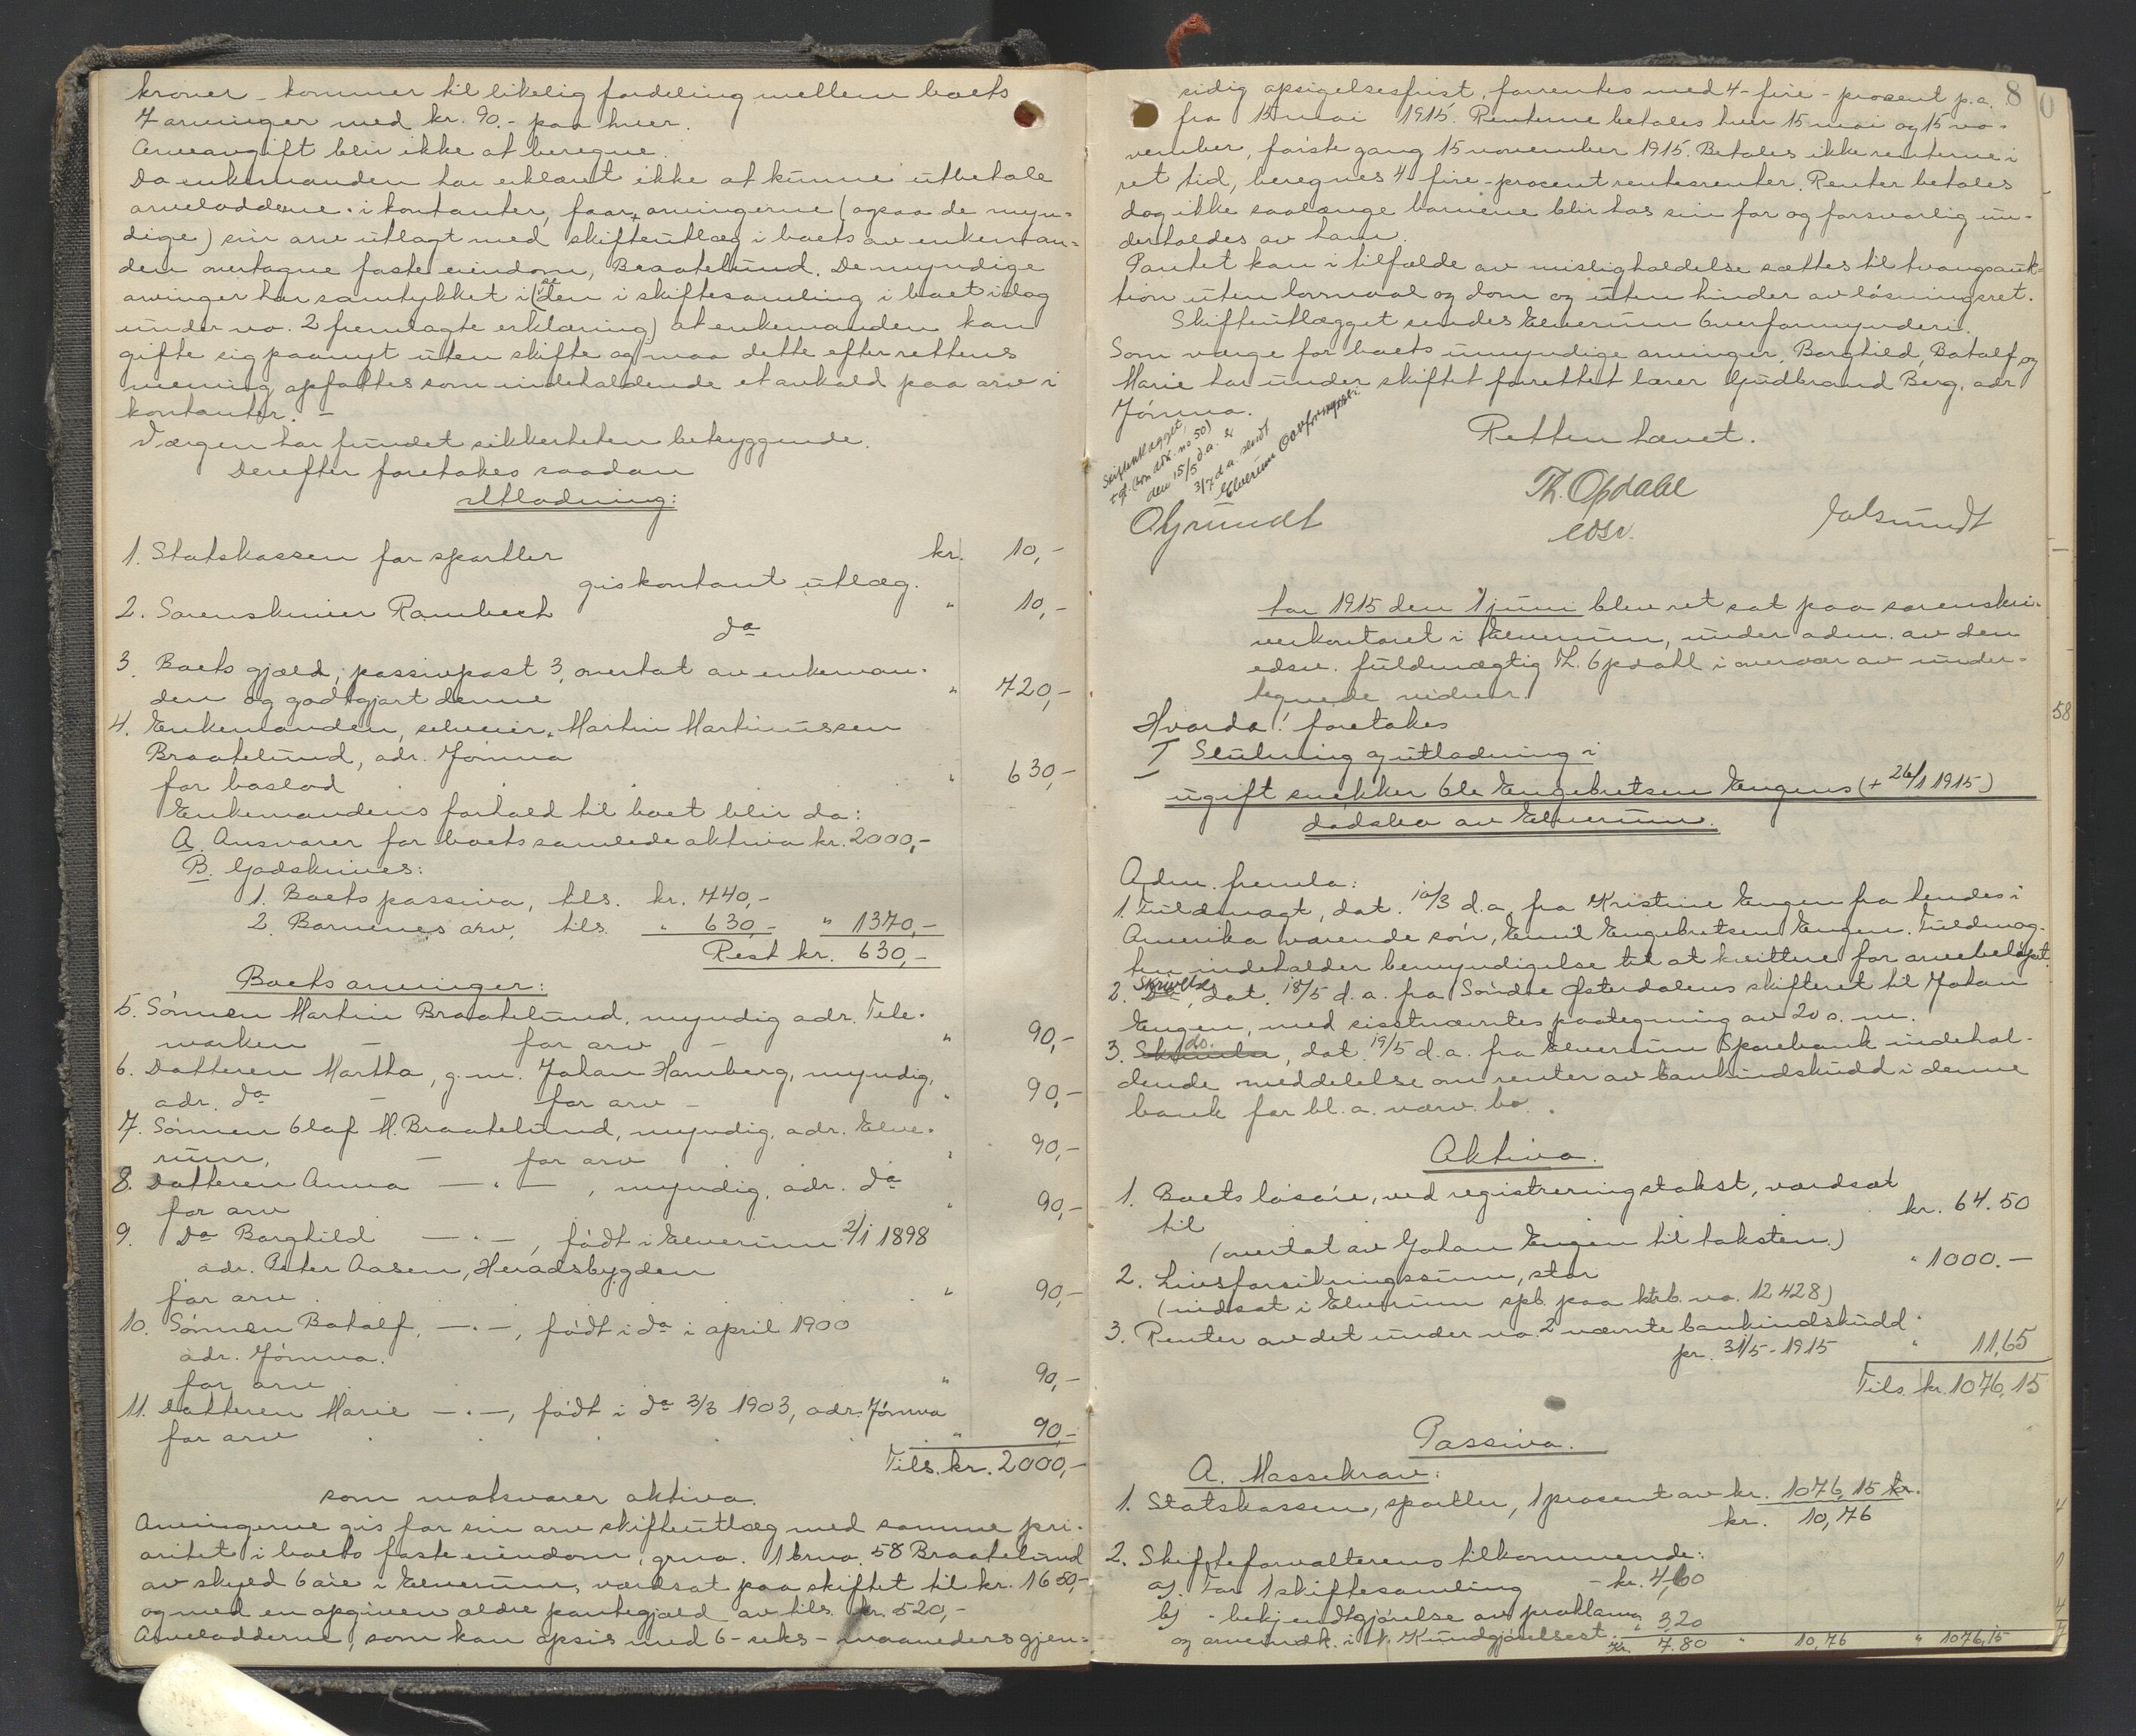 kroner - kommer til likelig fordeling mellem boets
7 arvinger med kr. 90.- paa hver.
Arveavgift blir ikke at beregne.
Da enkemanden har erklæret ikke at kunne utbetale
arveloddene i kontanter, faar arvingerne (ogsaa de myn=
dige) sin arv utlagt med skifteutlæg i boets av enkeman=
den overtagne faste eiendom, Braatelund. De myndige
arvinger har samtykket i (ved den i skiftesamling i boet idag
under no. 2 fremlagte erklæring) at enkemanden kan
gifte sig paanyt uten skifte og maa dette efter rettens
mening opfattes som indeholdende et avkald paa arv i
kontanter. -
Værgen har fundet sikkerheten betryggende.
Derefter foretokes saadan
Utlodning:
1. Statskassen for sportler kr. 10,-
gis kontant utlæg.
2. Sorenskriver Rambech " 10,-
do
3. Boets gjæld, passivpost 3, overtat av enkeman-
den og godtgjort denne " 720,-
4. Enkemanden, selveier Martin Martinussen
Braatelund, adr. Jömna
for boslod " 630,-
Enkemandens forhold til boet blir da:
A. Ansvarer for boets samlede aktiva kr. 2000,-
B. Godskrives:
1. Boets passiva, tils. kr. 740,-
2. Barnenes arv, tils. " 630,- " 1370,-
Rest kr. 630,-
Boets arvinger:
5. Sönnen Martin Braatelund, myndig adr. Tele-
marken - for arv - " 90,-
6. Datteren Martha, g.m. Johan Hamberg, myndig,
adr. do - for arv - " 90,-
7. Sönnen Olaf M. Braatelund, myndig, adr. Elve-
rum, - for arv " 90,-
8. Datteren Anna - " - , myndig, adr. do
for arv " 90,-
9. Do Borghild - " - , födt i Elverum 2/1 1898
adr. Peter Aasen, Heradsbygden
for arv " 90,-
10. Sönnen Botolf, - " -, födt i do i april 1900
adr. Jömna.
for arv " 90,-
11. Datteren Marie - " -, födt i do 3/3 1903, adr. Jömna
for arv " 90,-
Tils. kr. 2000,-
som motsvarer aktiva.
Arvingerne gis for sin arv skifteutlæg med samme pri-
oritet i boets faste eiendom, grno. 1 brno. 58 Braatelund
av skyld 6 øre i Elverum, værdsat paa skiftet til kr. 1650,-
og med en opgiven ældre pantegjæld av tils. kr. 520,-
Arveloddene, som kan opsis med 6-seks- maaneders gjen=
8
sidig opsigelsesfrist, forrentes med 4-fire-procent p.a.
fra 15 mai 1915. Renterne betales hver 15 mai og 15 no-
vember, förste gang 15 november 1915. Betales ikke renterne i
ret tid, beregnes 4-fire-procent rentesrenter. Renter betales
dog ikke saalænge barnene blir hos sin far og forsvarlig un-
derholdes av ham.
Pantet kan i tilfælde av misligholdelse sættes til tvangsauk=
tion uten lovmaal og dom og uten hinder av lösningsret.
Skifteutlægget sendes Elverum Overformynderi.
Som værge for boets umyndige arvinger, Borghild, Botolf og
Marie har under skiftet forrettet lærer Gudbrand Berg, adr
Jömna.
Skifteutlægget,
tgl. (som dok. no 50)
den 15/5 d.a. er
3/7 d.a. sendt
Elverum Overformynderi
Retten hævet.
Th. Opdahl
edsv.
O Grundt
Aar 1915 den 1 juni blev ret sat paa sorenskri-
verkontoret i Elverum, under adm. av den
edsv. fuldmægtig Th. Opdahl i overvær av under-
tegnede vidner.
Hvorda! foretokes
I Slutning og utlodning i
ugift snekker Ole Engebretsen Engens (+ 26/1 1915)
dödsbo av Elverum.
Adm. fremla:
1. Fuldmagt, dat. 10/3 d.a, fra Kristine Engen fra hendes i
Amerika værende sön, Emil Engebretsen Engen. Fuldmag-
ten indeholder bemyndigelse til at kvittere for arvebelöpet.
2. Skrivelse, dat. 18/5 d.a. fra Söndre Østerdalens skifteret til Johan
Engen, med sisstnævntes paategning av 20 s.m.
3. do. , dat. 19/5 d.a. fra Elverum Sparebank indehol-
dende meddelelse om renter av bankindskudd i denne
bank for bl. a. nærv. bo.
Aktiva.
1. Boets lösöre, ved registreringstakst, værdsat
til kr. 64.50
(overtat av Johan Engen til taksten.)
2. Livsforsikringssum, stor " 1000.-
(indsat i Elverum spb. paa ktrb. no. 12428)
3. Renter av det under no. 2 nævnte bankindskudd
pr. 31/5 - 1915 " 11,65
Tils. kr. 1076,15
Passiva.
A. Massekrav:
1. Statskassen, sportler, 1 procent av kr. 1076,15 kr.
kr. 10,76
2. Skifteforvalterens tilkommende:
a). For 1 skiftesamling - kr. 4,60
b) - bekjendtgjörelse av proklama
og arveindk. i N. Kundgjörelsest. " 3,20
Kr. 7.80 " 10,76 " 1076,15
58